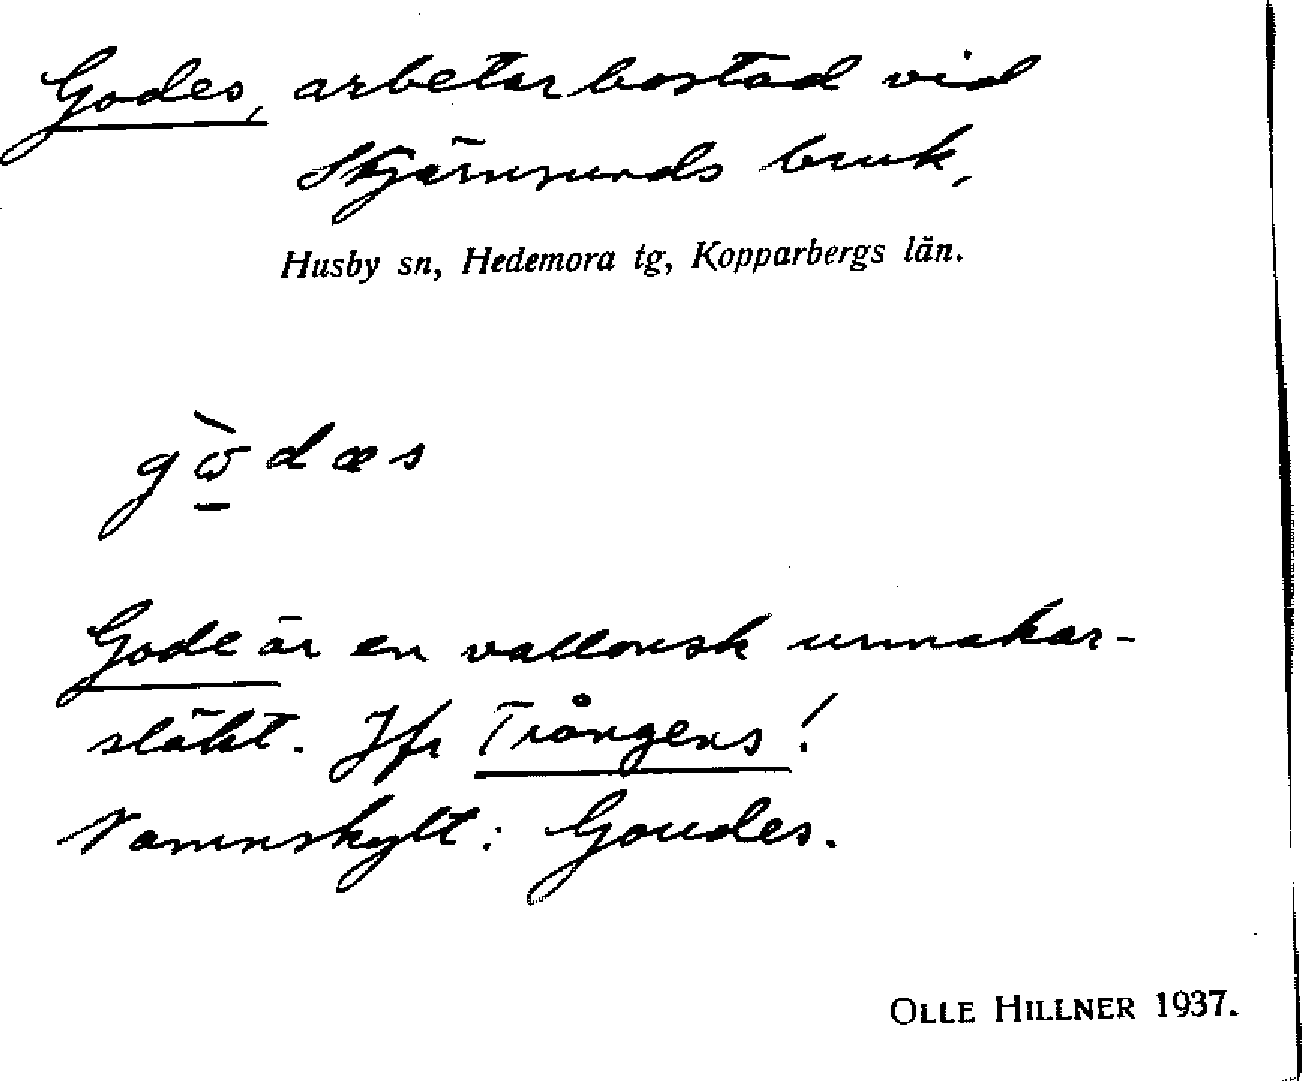 Godes, arbetarbostad vid
Stjärnsunds bruk,
Husby sn, Hedemora tg, Kopparbergs län.
gò̱dæs
Gode är en vallonsk urmakar-
släkt. Jfr Trångens!
Namnskylt: Goudes.
OLLE HILLNER 1937.